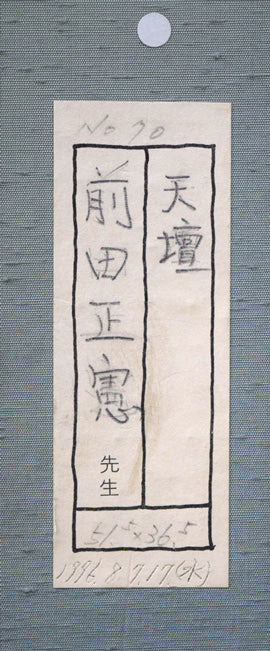 No 70
天壇
前田正憲
先生
51.5×36.5
1996.8 7.17.(水)